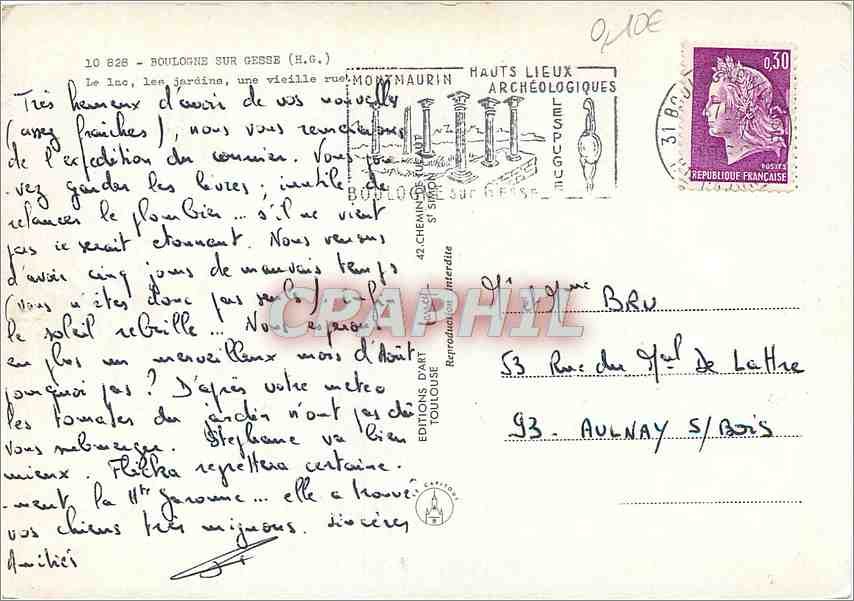 0,10€
10 828 - BOULOGNE SUR GESSE (H.G.)
Le lac, les jardins, une vieille rue
MONTMAURIN HAUTS LIEUX
ARCHÉOLOGIQUES
LESPUGUE
BOULOGNE sur GESSE
31 BOU
0,30
POSTES
REPUBLIQUE FRANÇAISE
Très heureux d'avoir de vos nouvelles
(assez fraiches), nous vous remercions
de l'expédition du courrier. Vous pou
-vez garder les livres ; inutile de
relancer le plombier ... s'il ne vient
pas ce serait étonnant. Nous venons
d'avoir cinq jours de mauvais temps
(vous n'êtes donc pas seuls) enfin
le soleil rebrille ... Nous espérons
en plus un merveilleux mois d'Août
pourquoi pas ? D'après votre météo
les tomates du jardin n'ont pas dû
vous submerger. Stéphane va bien
mieux. Flicka regrettera certaine.
-ment la Hte Garonne ... elle a trouvé
vos chiens très mignons. Sincères
Amitiés
EDITIONS D'ART
TOULOUSE
42, CHEMIN DE
St SIMON
Reproduction interdite
CAPITOUL
CPAPHIL
Mr et Mme BRU
53 Rue du Mal De Lattre
93 - AULNAY S/BOIS